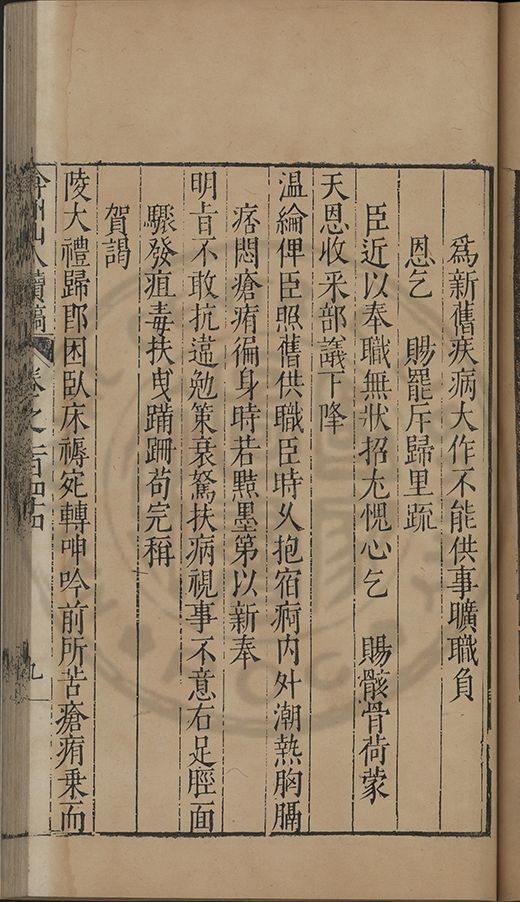 爲新舊疾病大作不能供事曠職負
恩乞　賜罷斥歸里疏
臣近以奉職無狀招尤愧心乞　賜骸骨荷蒙
天恩收采部議下降
温綸俾臣照舊供職臣時乆抱宿痾内外潮熱胸膈
痞悶瘡痏徧身時若㸃墨第以新奉
明旨不敢抗違勉策衰駑扶病視事不意右足脛面
驟發疽毒扶曳蹒跚苟完稱
賀謁
陵大禮歸即困臥床褥宛轉呻吟前所苦瘡痏乗而
山人續稿
卷之一百四十四
九